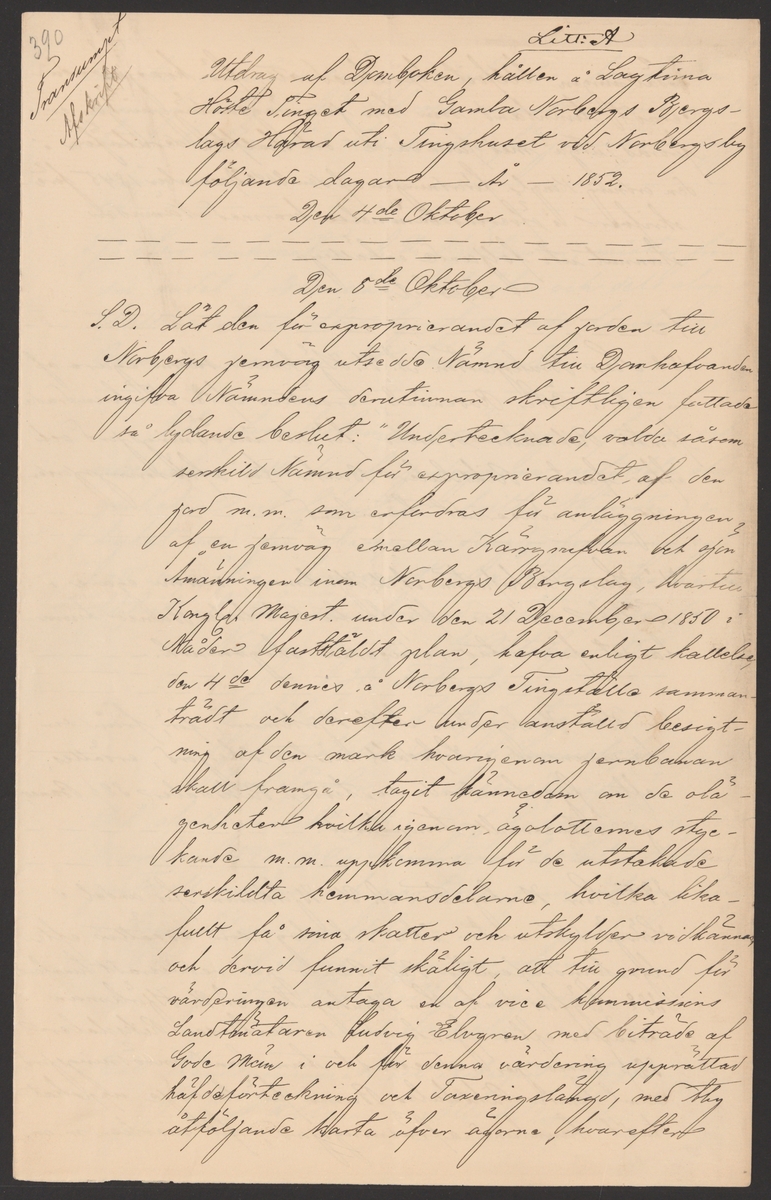 390
Transumpt
Afskrift
Litt: A
Utdrag af Domboken, hållen å Lagtima
Höste Tinget med Gamla Norbergs Bergs-
lags Härad uti Tingshuset vid Norbergsby
följande dagar — År — 1852.
Den 4de Oktober
Den 8de Oktober
S. D. Lät den för exproprierandet af jorden till
Norbergs jernväg utsedde Nämnd till Domhafvanden
ingifva Nämndens derutinnan skriftligen fattade
så lydande beslut: "Undertecknade, valda såsom
serskild Nämnd för exproprierandet af den
jord m.m. som erfordras för anläggningen
af en jernväg emellan Kärrgrufvan och sjön
Åmänningen inom Norbergs Bergslag, hvartill
Kongl. Majest. under den 21 December 1850 i
Nåder fastställdt plan, hafva enligt kallelse
den 4de dennes å Norbergs Tingställe samman-
trädt och derefter under anställd besigt-
ning af den mark hvarigenom jernbanan
skall framgå, tagit kännedom om de olä-
genheter hvilka igenom ägolotternes styc-
kande m.m. uppkomma för de utstakade
serskildta hemmansdelarne, hvilka lika-
fullt få sina skatter och utskylder vidkännas
och dervid funnit skäligt, att till grund för
värderingen antaga en af vice kommissions
Landtmätaren Ludvig Elvgren med biträde af
Gode Män i och för denna värdering upprättad
häfdeförteckning och Taxeringslängd, med thy
åtföljande karta öfver ägorne, hvarefter